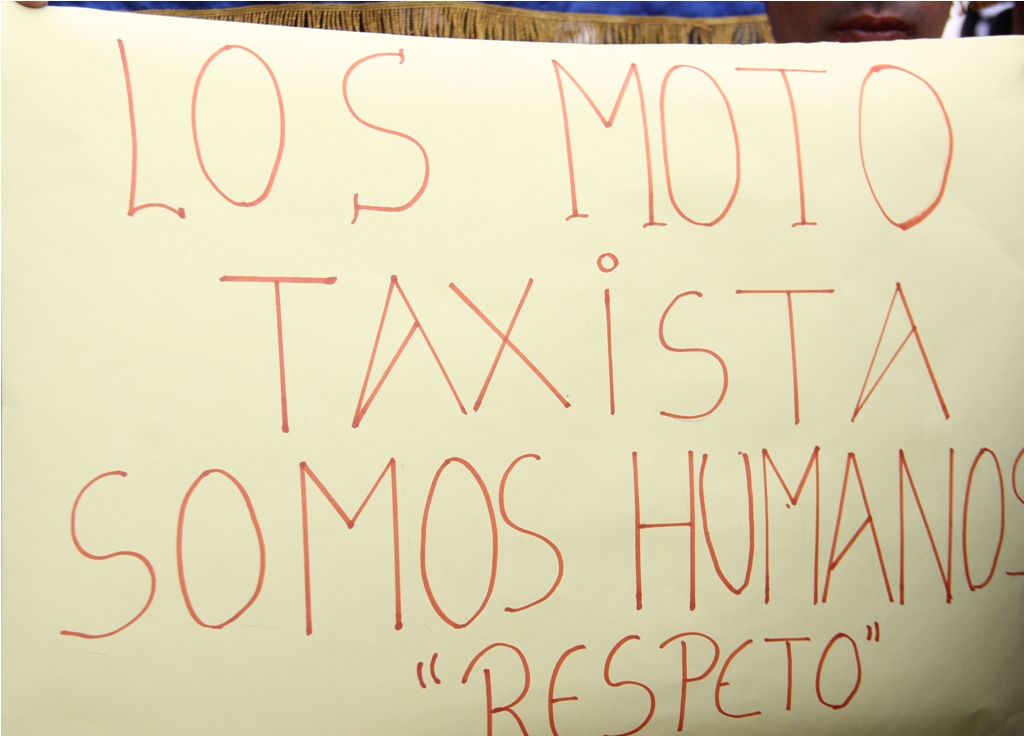 LOS MOTO
TAXiSTA
SOMOS HUMANOS
"RESPETO"